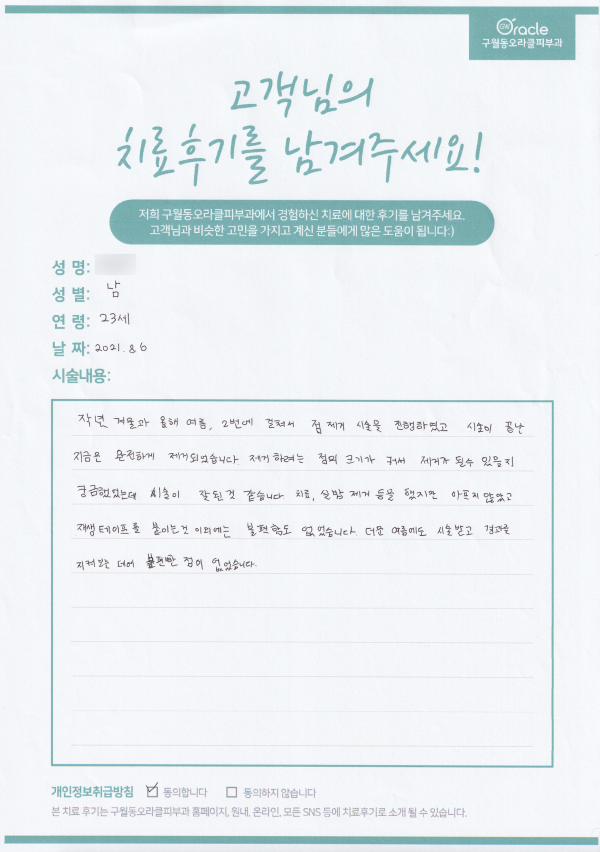 Oracle
구월동오라클피부과
고객님의
치료후기를 남겨주세요!
저희 구월동오라클피부과에서 경험하신 치료에 대한 후기를 남겨주세요.
고객님과 비슷한 고민을 가지고 계신 분들에게 많은 도움이 됩니다:)
성 명:
성 별: 남
연 령: 23세
날 짜: 2021. 8. 6
시술내용:
작년 겨울과 올해 여름, 2번에 걸쳐서 점 제거 시술을 진행하였고 시술이 끝난
지금은 완전하게 제거되었습니다. 제거 하려는 점의 크기가 커서 제거가 될수 있을지
궁금했었는데 시술이 잘된것 같습니다. 치료, 실밥 제거 등을 했지만 아프지 않았고
재생테이프를 붙이는것 이외에는 불편함도 없었습니다. 더운 여름에도 시술받고 결과를
지켜보는 데에 불편한 점이 없었습니다.
개인정보취급방침 ☑ 동의합니다 ☐ 동의하지 않습니다
본 치료 후기는 구월동오라클피부과 홈페이지, 원내, 온라인, 모든 SNS 등에 치료후기로 소개 될 수 있습니다.